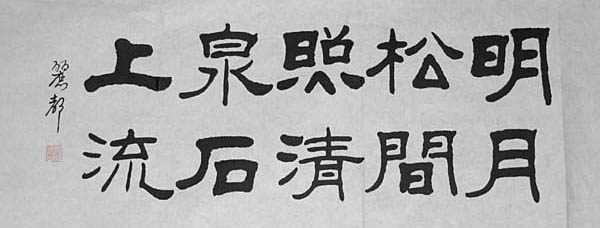 明月
松間
照清
泉石
上流